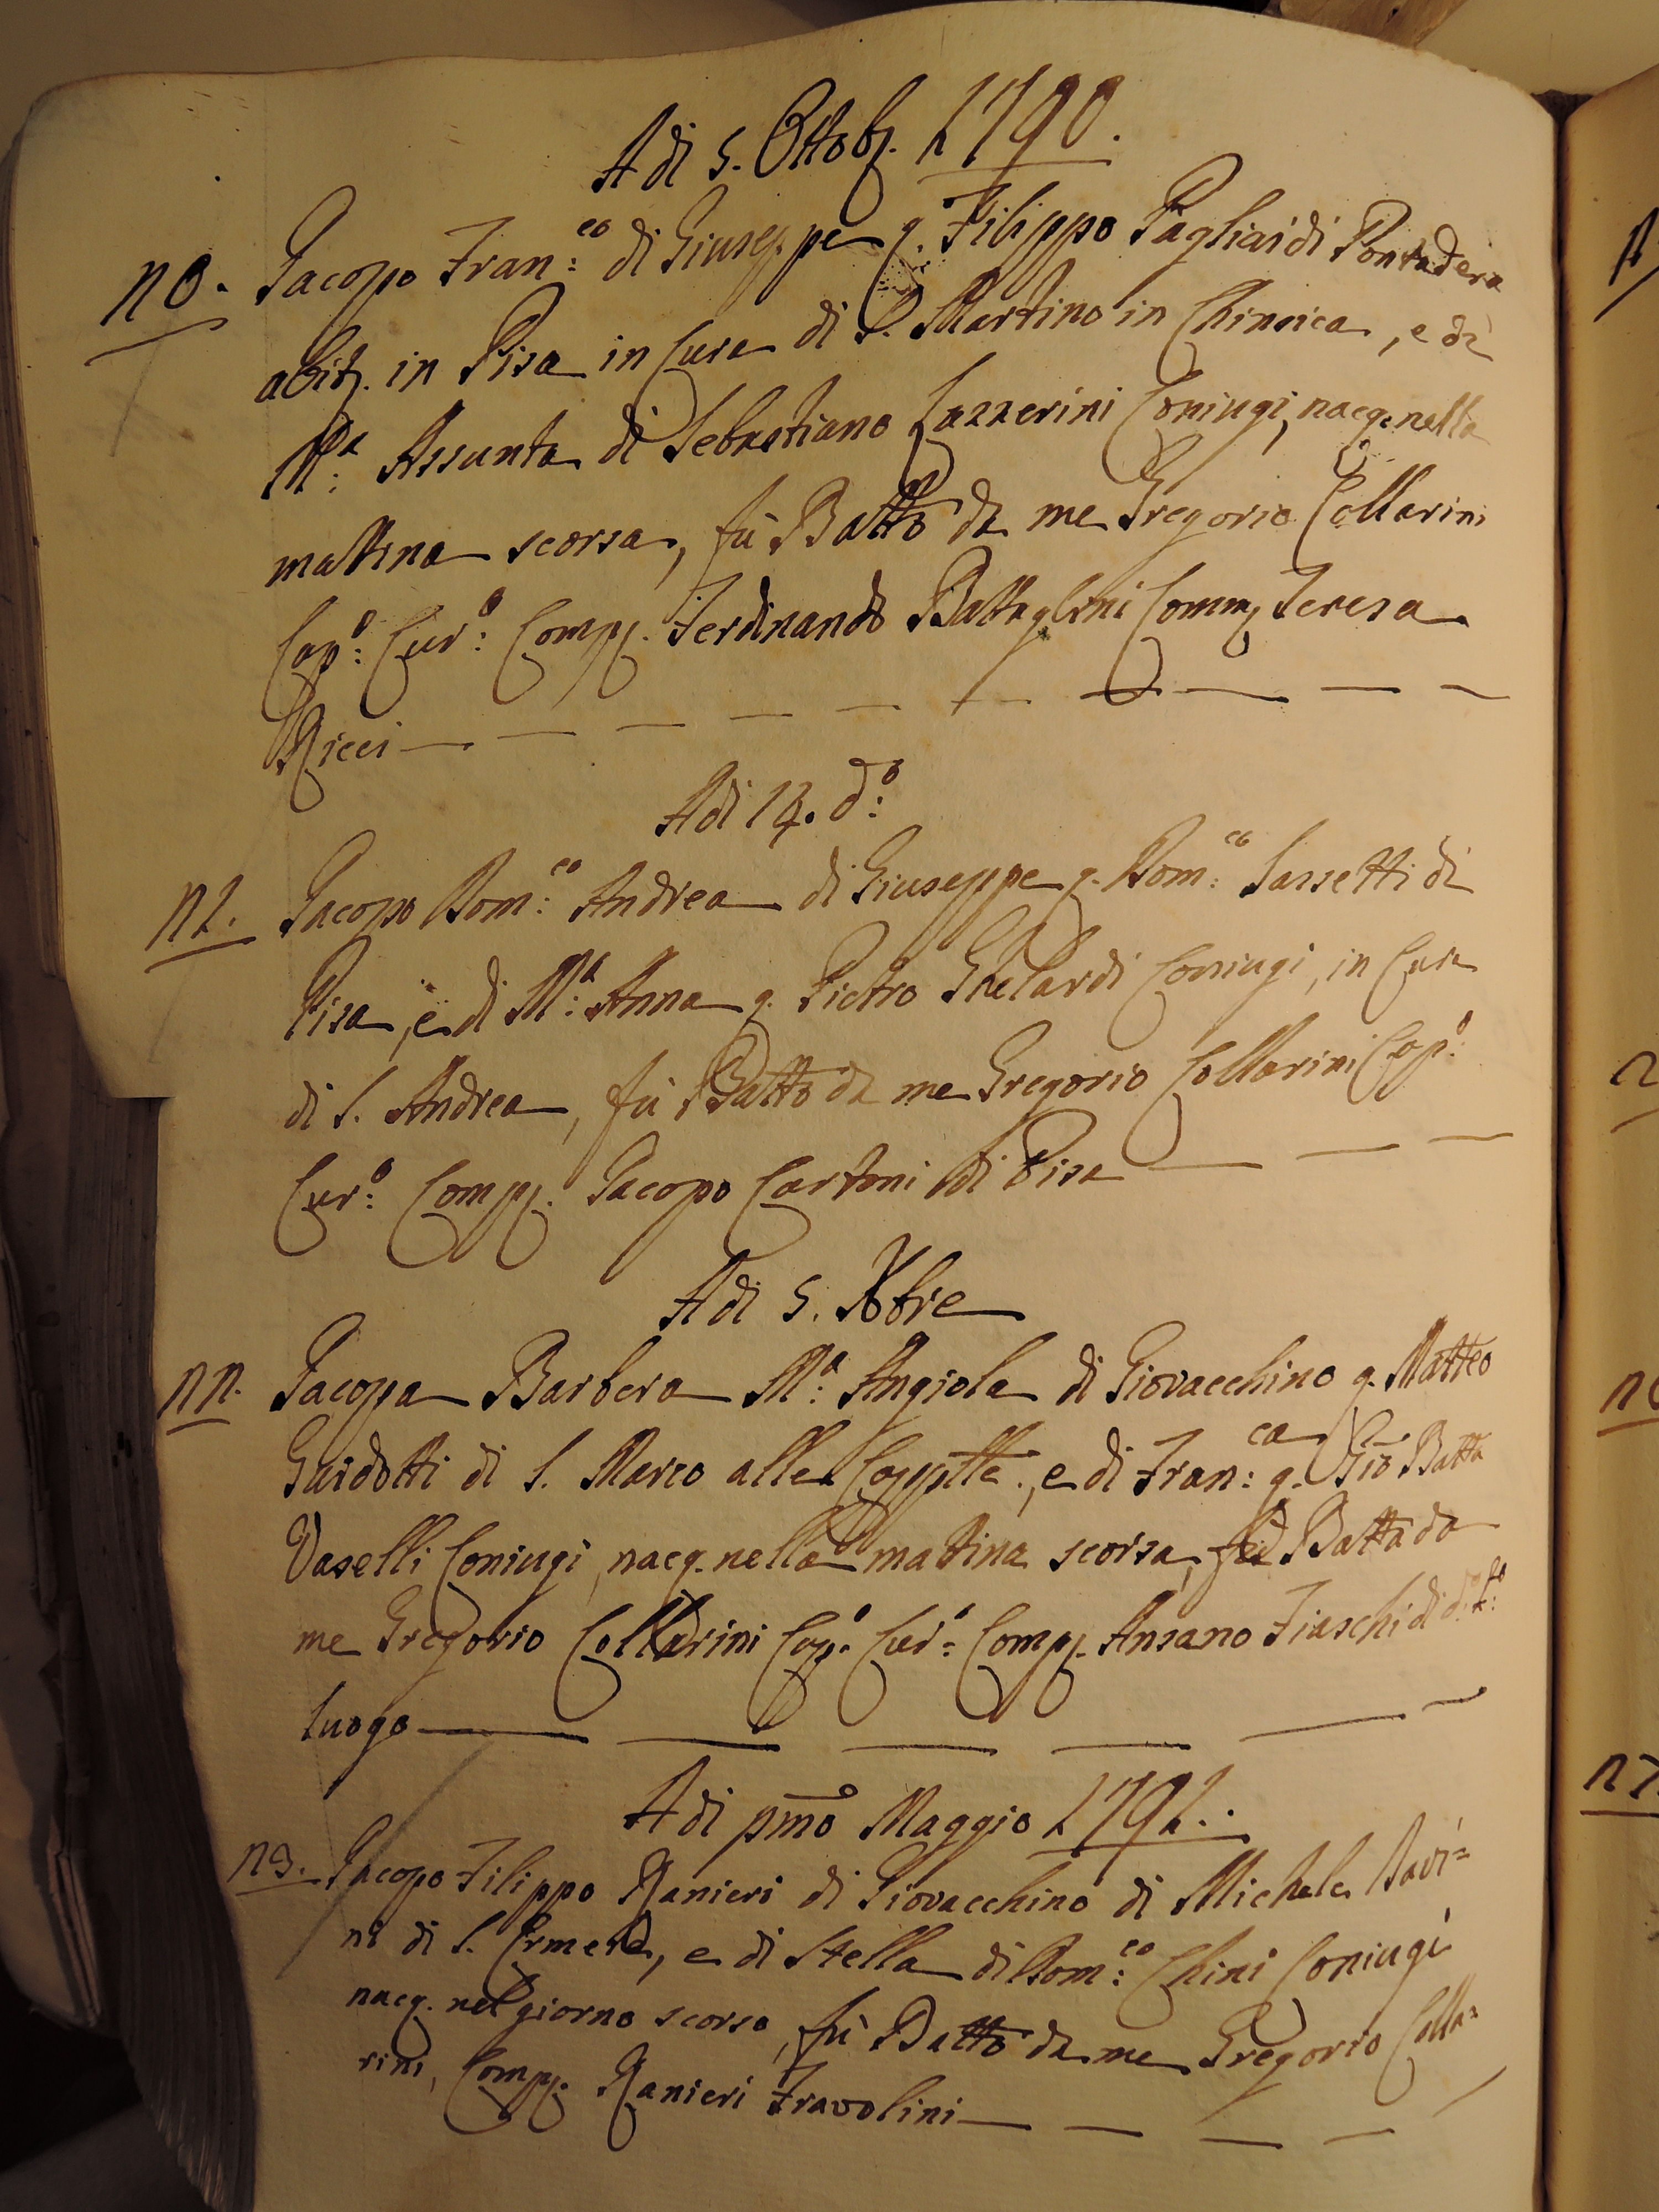 Adi 5. Ottob. 1790.
20. Jacopo Fran:co di Giuseppe q. Filippo Pagliai di Pontadera
abit. in Pisa in Cura di S. Martino in Chinsica, e di
M:a Assunta di Sebastiano Lazzerini Coniugi, nacq. nella
mattina scorsa, fù Batto da me Gregorio Collarini
Cap:o Cur:o Comp. Ferdinando Battaglini Comm. Teresa
Ricci
Adi 14. d:o
21. Jacopo Dom:co Andrea di Giuseppe q. Dom:co Sassetti di
Pisa, e di M:a Anna q. Pietro Ghelardi Coniugi, in Cura
di S. Andrea, fù Batto da me Gregorio Collarini Cap:o
Cur:o Comp. Jacopo Cartoni di Pisa
Adi 5. Xbre
22. Jacopa Barbera M:a Angiola di Giovacchino q. Matteo
Guidotti di S. Marco alle Cappelle, e di Fran:ca q. Gio Batta
Vaselli Coniugi, nacq. nella mattina scorsa, fù Batta da
me Gregorio Collarini Cap:o Cur:o Comp. Ansano Fiaschi di d:to
luogo
Adi pmo Maggio 1791.
23. Jacopo Filippo Ranieri di Giovacchino di Michele Davi=
ni di S. Ermete, e di Stella di Dom:co Chini Coniugi
nacq. nel giorno scorso, fù Batto da me Gregorio Colla=
rini, Comp. Ranieri Fravolini
2